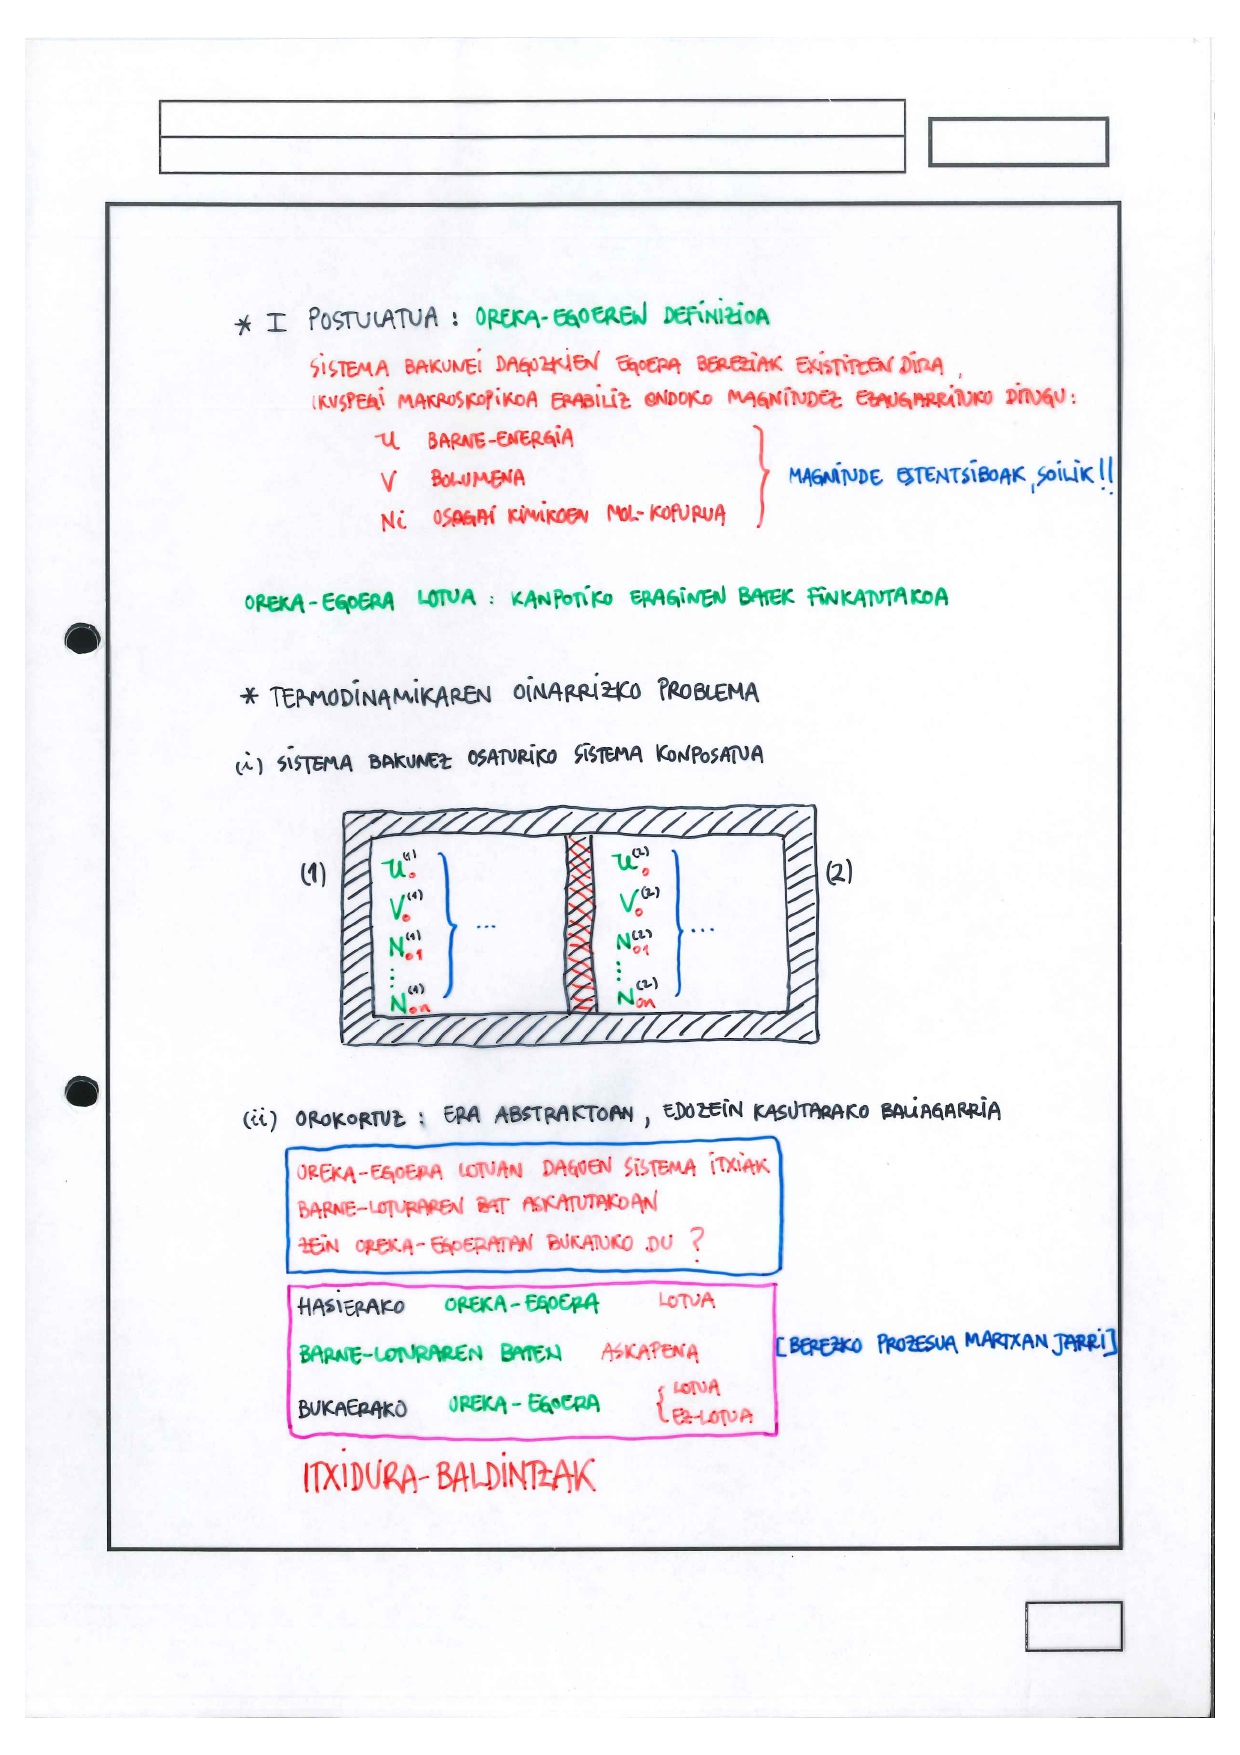 * I POSTULATUA : OREKA-EGOEREN DEFINIZIOA
SISTEMA BAKUNEI DAGOZKIEN EGOERA BEREZIAK EXISTITZEN DIRA,
IKUSPEGI MAKROSKOPIKOA ERABILIZ ONDOKO MAGNITUDEZ EZAUGARRITUKO DITUGU:
U BARNE-ENERGIA
V BOLUMENA
Ni OSAGAI KIMIKOEN MOL-KOPURUA
MAGNITUDE ESTENTSIBOAK, SOILIK!!
OREKA-EGOERA LOTUA : KANPOTIKO ERAGINEN BATEK FINKATUTAKOA
* TERMODINAMIKAREN OINARRIZKO PROBLEMA
(i) SISTEMA BAKUNEZ OSATURIKO SISTEMA KONPOSATUA
(1) U₀⁽¹⁾ V₀⁽¹⁾ N₀₁⁽¹⁾ ⋮ N₀ₙ⁽¹⁾ } ...
U₀⁽²⁾ V₀⁽²⁾ N₀₁⁽²⁾ ⋮ N₀ₙ⁽²⁾ } ... (2)
(ii) OROKORTUZ : ERA ABSTRAKTOAN, EDOZEIN KASUTARAKO BALIAGARRIA
OREKA-EGOERA LOTUAN DAGOEN SISTEMA ITXIAK
BARNE-LOTURAREN BAT ASKATUTAKOAN
ZEIN OREKA-EGOERATAN BUKATUKO DU ?
HASIERAKO OREKA-EGOERA LOTUA
BARNE-LOTURAREN BATEN ASKAPENA [BEREZKO PROZESUA MARTXAN JARRI]
BUKAERAKO OREKA-EGOERA { LOTUA
EZ-LOTUA
ITXIDURA-BALDINTZAK